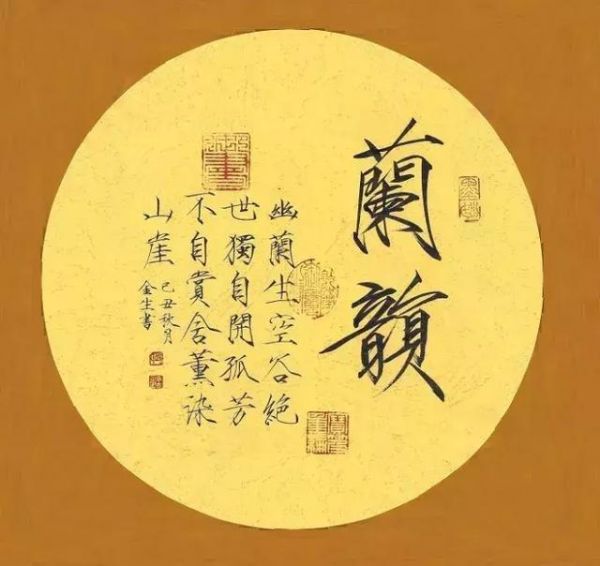 蘭韻
幽蘭生空谷絕
世獨自開孤芳
不自賞含薰染
山崖
己丑秋月
金生書